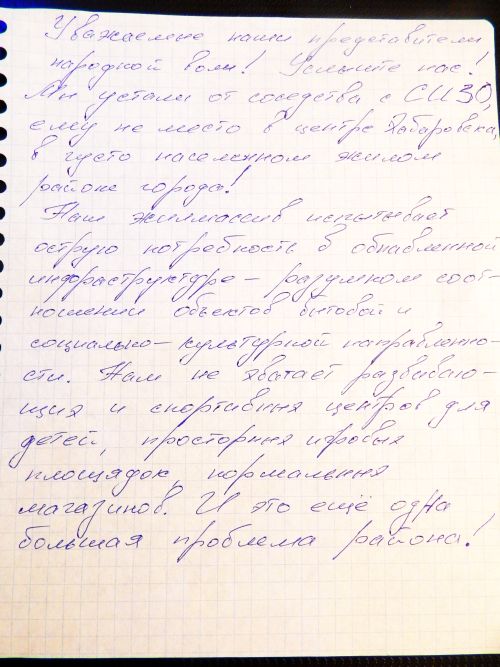 Уважаемые наши представители
народной воли! Услышьте нас!
Мы устали от соседства с СИЗО,
ему не место в центре Хабаровска,
в густо населенном жилом
районе города!
Наш жилмассив испытывает
острую потребность в обнавленной
инфраструктуре – разумном соот-
ношении объектов бытовой и
социально-культурной направленно-
сти. Нам не хватает развиваю-
щих и спортивных центров для
детей, просторных игровых
площадок, нормальных
магазинов. И это ещё одна
большая проблема района!